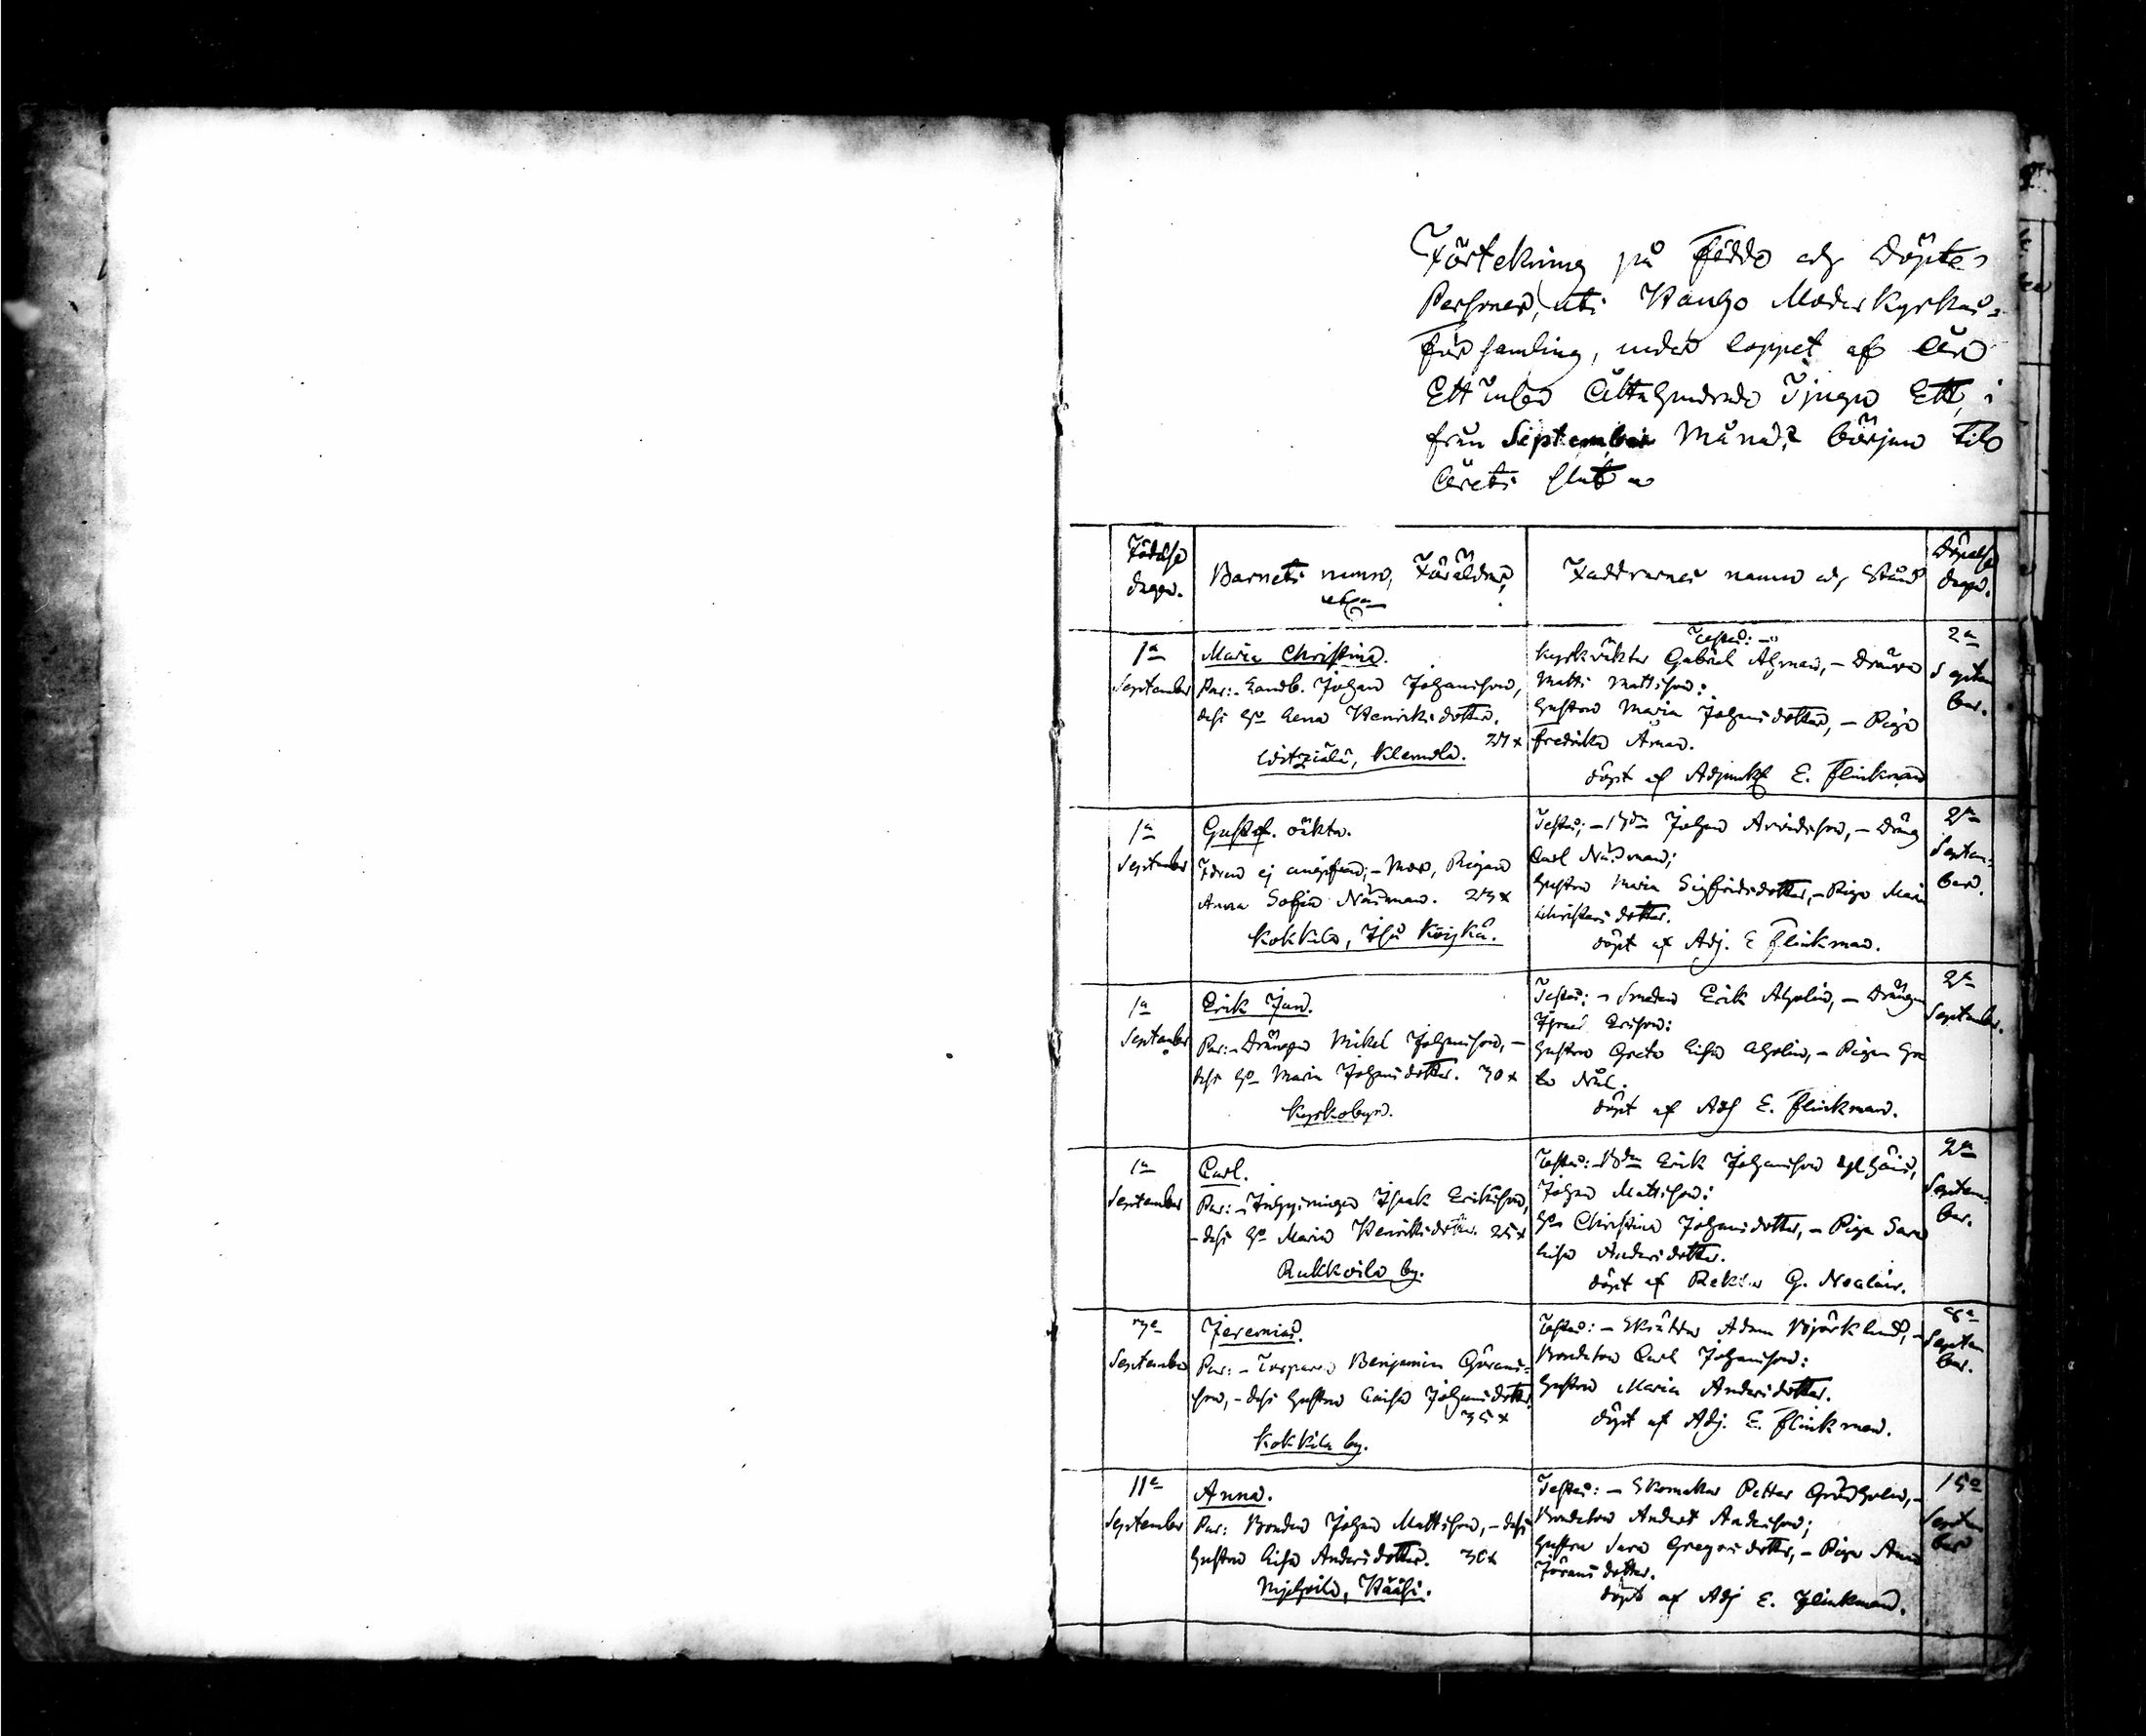 Förtekning på födde och Döpte
Personer, uti Hauho Moderkyrko-
församling, under loppet af året
Ett tusen Åttahundrade Tjugu Ett, i
från September Månads början till
årets slut
Födelse
dagen.
Barnets namn, Föräldrar,
Faddrarnes namn och Stånd
Döpelse
dagen.
1a
September
Maria Christina.
Par:- Landb. Johan Johansson,
dess H:o Lena Henriksdotter.
27 x
Klemola.
Testes:
Kyrkväktar Gabriel Ahman, - Drängen
Matti Mattsson:
Hustrun Maria Johansdotter, - Pigan
Fredrika Åman.
döpt af Adjunkt E. Flinkman
2a
Septem
ber.
1a
September
Gustaf. oäkta.
Fadren ej angifven; - Mor, Pigan
Anna Sofia Näsman. 23 x
Kokkila, Iso
Testes; - Johan Arvidsson, - Dräng
Carl Näsman;
Hustrun Maria Sigfridsdotter, - Pigan Maria
Christersdotter.
döpt af Adj. E Flinkman.
2a
Septem-
ber.
1a
September
Erik Johan.
Par:- Drängen Mikel Johansson, -
dess H:o Maria Johansdotter. 30 x
Kyrkobyn.
Testes: - Smeden Erik Aholin, - Drängen
Thomas Ersson:
Hustrun Greta Lisa Aholin, - Pigan Gre
ta
döpt af Adj E. Flinkman.
2a
September.
1a
September
Carl.
Par: - Inhysingen Isaak Eriksson,
- dess H:o Maria Henriksdotter. 25 x
Rukkoila by.
Testes: - Erik Johansson
Johan Mattsson:
H:o Christina Johansdotter, - Pigan Sara
Lisa Andersdotter.
döpt af Rektor G.
2a
Septem-
ber.
7e
September
Jeremias.
Par: - Torparen Benjamin Görans-
son, - dess Hustru Caisa Johansdotter.
35 x
Kokkila by.
Testes: - Skräddar Adam Björklund, -
Bondeson Carl Johansson:
Hustrun Maria Andersdotter.
döpt af Adj. E. Flinkman.
8a
Septem
ber.
11e
September
Anna.
Par: Bonden Johan Mattsson, - dess
Hustru Lisa Andersdotter. 30 x
Testes: - Skomakar Petter Grönholm, -
Bondeson Anders Andersson;
Hustrun Sara Gregersdotter, - Pigan Anna
Göransdotter.
döpt af Adj E. Flinkman.
15e
Septem
ber